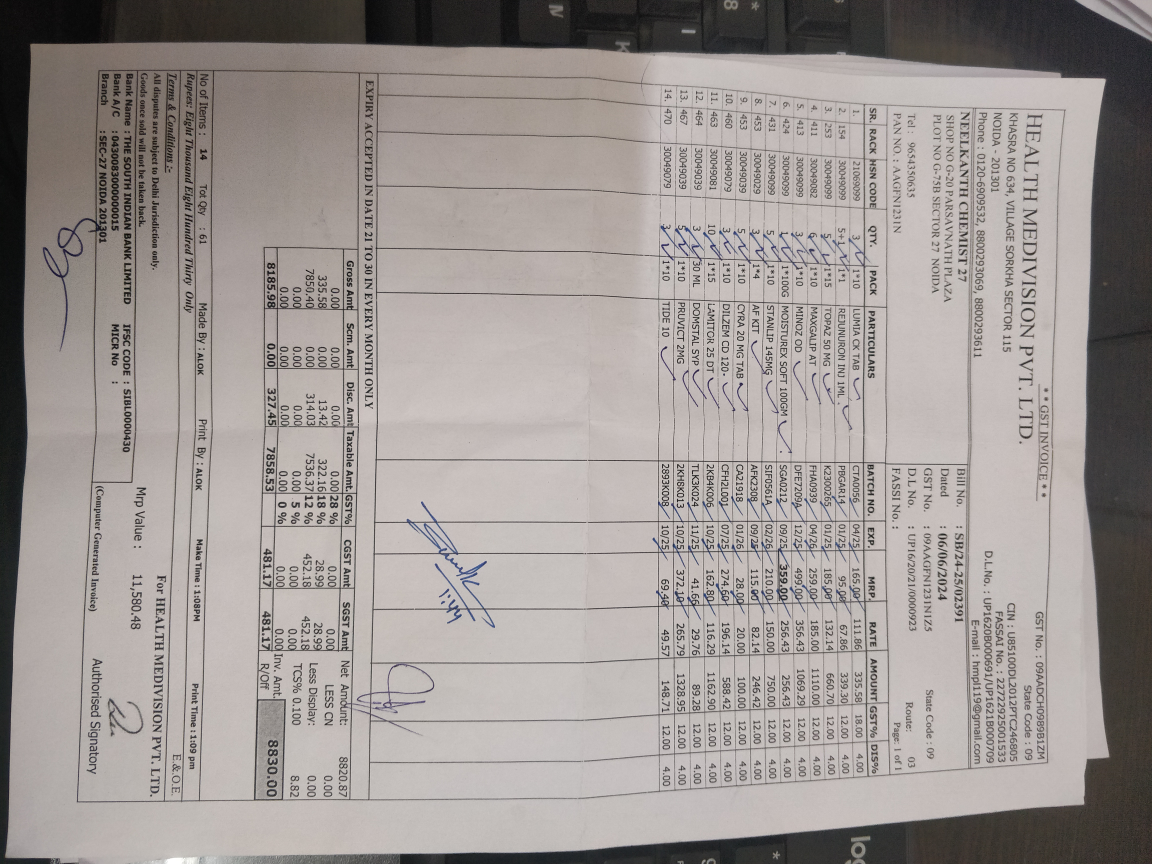 * * GST INVOICE * *
HEALTH MEDIVISION PVT. LTD.
KHASRA NO 634, VILLAGE SORKHA SECTOR 115
NOIDA - 201301
Phone : 0120-6909532, 8800293069, 8800293611
GST No. : 09AADCH0989B1ZM
State Code : 09
CIN : U85100DL2012PTC246805
FASSAI No. : 22722925001533
D.L.No. : UP1620B000691/UP1621B000709
E-mail : hmpl119@gmail.com
NEELKANTH CHEMIST 27
SHOP NO G-20 PARSAVNATH PLAZA
PLOT NO G-75B SECTOR 27 NOIDA
Tel : 9654350635
PAN NO. : AAGFN1231N
Bill No. : SB/24-25/02391
Dated : 06/06/2024
GST No. : 09AAGFN1231N1Z5 State Code : 09
D.L No. : UP16/20/21/0000923 Route: 03
FASSI No. : Page: 1 of 1
SR. RACK HSN CODE QTY. PACK PARTICULARS BATCH NO. EXP. MRP. RATE AMOUNT GST% DIS%
1. 21069099 3 1*10 LUMIA CK TAB CTA0056 04/25 165.00 111.86 335.58 18.00 4.00
2. 154 30049099 5+ 1*1 REJUNURON INJ 1ML PBGAR14 01/25 95.00 67.86 339.30 12.00 4.00
3. 253 30049099 5 1*15 TOPAZ 50 MG K2300265 01/25 185.00 132.14 660.70 12.00 4.00
4. 411 30049082 1*10 MAXGALIP AT FHA0939 04/26 259.00 185.00 1110.00 12.00 4.00
5. 413 30049099 3 1*10 MINOZ OD DFE7209A 12/25 499.00 356.43 1069.29 12.00 4.00
6. 424 30049099 1 1*100G MOISTUREX SOFT 100GM SGA0212 09/25 359.00 256.43 256.43 12.00 4.00
7. 431 30049099 5 1*10 STANLIP 145MG SIF0561A 02/26 210.00 150.00 750.00 12.00 4.00
8. 453 30049029 3 1*4 AF KIT AFK2308 09/25 115.00 82.14 246.42 12.00 4.00
9. 453 30049039 5 1*10 CYRA 20 MG TAB CA21918 01/26 28.00 20.00 100.00 12.00 4.00
10. 460 30049079 3 1*10 DILZEM CD 120- CFH2L001 07/25 274.60 196.14 588.42 12.00 4.00
11. 463 30049081 10 1*15 LAMITOR 25 DT 2KB4K006 10/25 162.80 116.29 1162.90 12.00 4.00
12. 464 30049039 3 30 ML DOMSTAL SYP TLK3K024 11/25 41.66 29.76 89.28 12.00 4.00
13. 467 30049039 5 1*10 PRUVICT 2MG 2KH8K013 10/25 372.10 265.79 1328.95 12.00 4.00
14. 470 30049079 3 1*10 TIDE 10 2893K008 10/25 69.40 49.57 148.71 12.00 4.00
1:44
EXPIRY ACCEPTED IN DATE 21 TO 30 IN EVERY MONTH ONLY
Gross Amt Scm. Amt Disc. Amt Taxable Amt. GST% CGST Amt SGST Amt
0.00 0.00 0.00 0.00 28 % 0.00 0.00
335.58 0.00 13.42 322.16 18 % 28.99 28.99
7850.40 0.00 314.03 7536.37 12 % 452.18 452.18
0.00 0.00 0.00 0.00 5 % 0.00 0.00
0.00 0.00 0.00 0.00 0 %
8185.98 0.00 327.45 7858.53 481.17 481.17
Net Amount: 8820.87
LESS CN 0.00
Less Display: 0.00
TCS% 0.100 8.82
Inv. Amt. R/Off 8830.00
No of Items : 14 Tot Qty : 61 Made By : ALOK Print By : ALOK Make Time : 1:08PM Print Time : 1:09 pm
Rupees: Eight Thousand Eight Hundred Thirty Only
E.& O.E.
Terms & Conditions :-
All disputes are subject to Delhi Jurisdiction only.
Goods once sold will not be taken back.
Bank Name : THE SOUTH INDIAN BANK LIMITED IFSC CODE : SIBL0000430
Bank A/C : 0430083000000015 MICR No :
Branch : SEC-27 NOIDA 201301
Mrp Value : 11,580.48
For HEALTH MEDIVISION PVT. LTD.
(Computer Generated Invoice)
Authorised Signatory